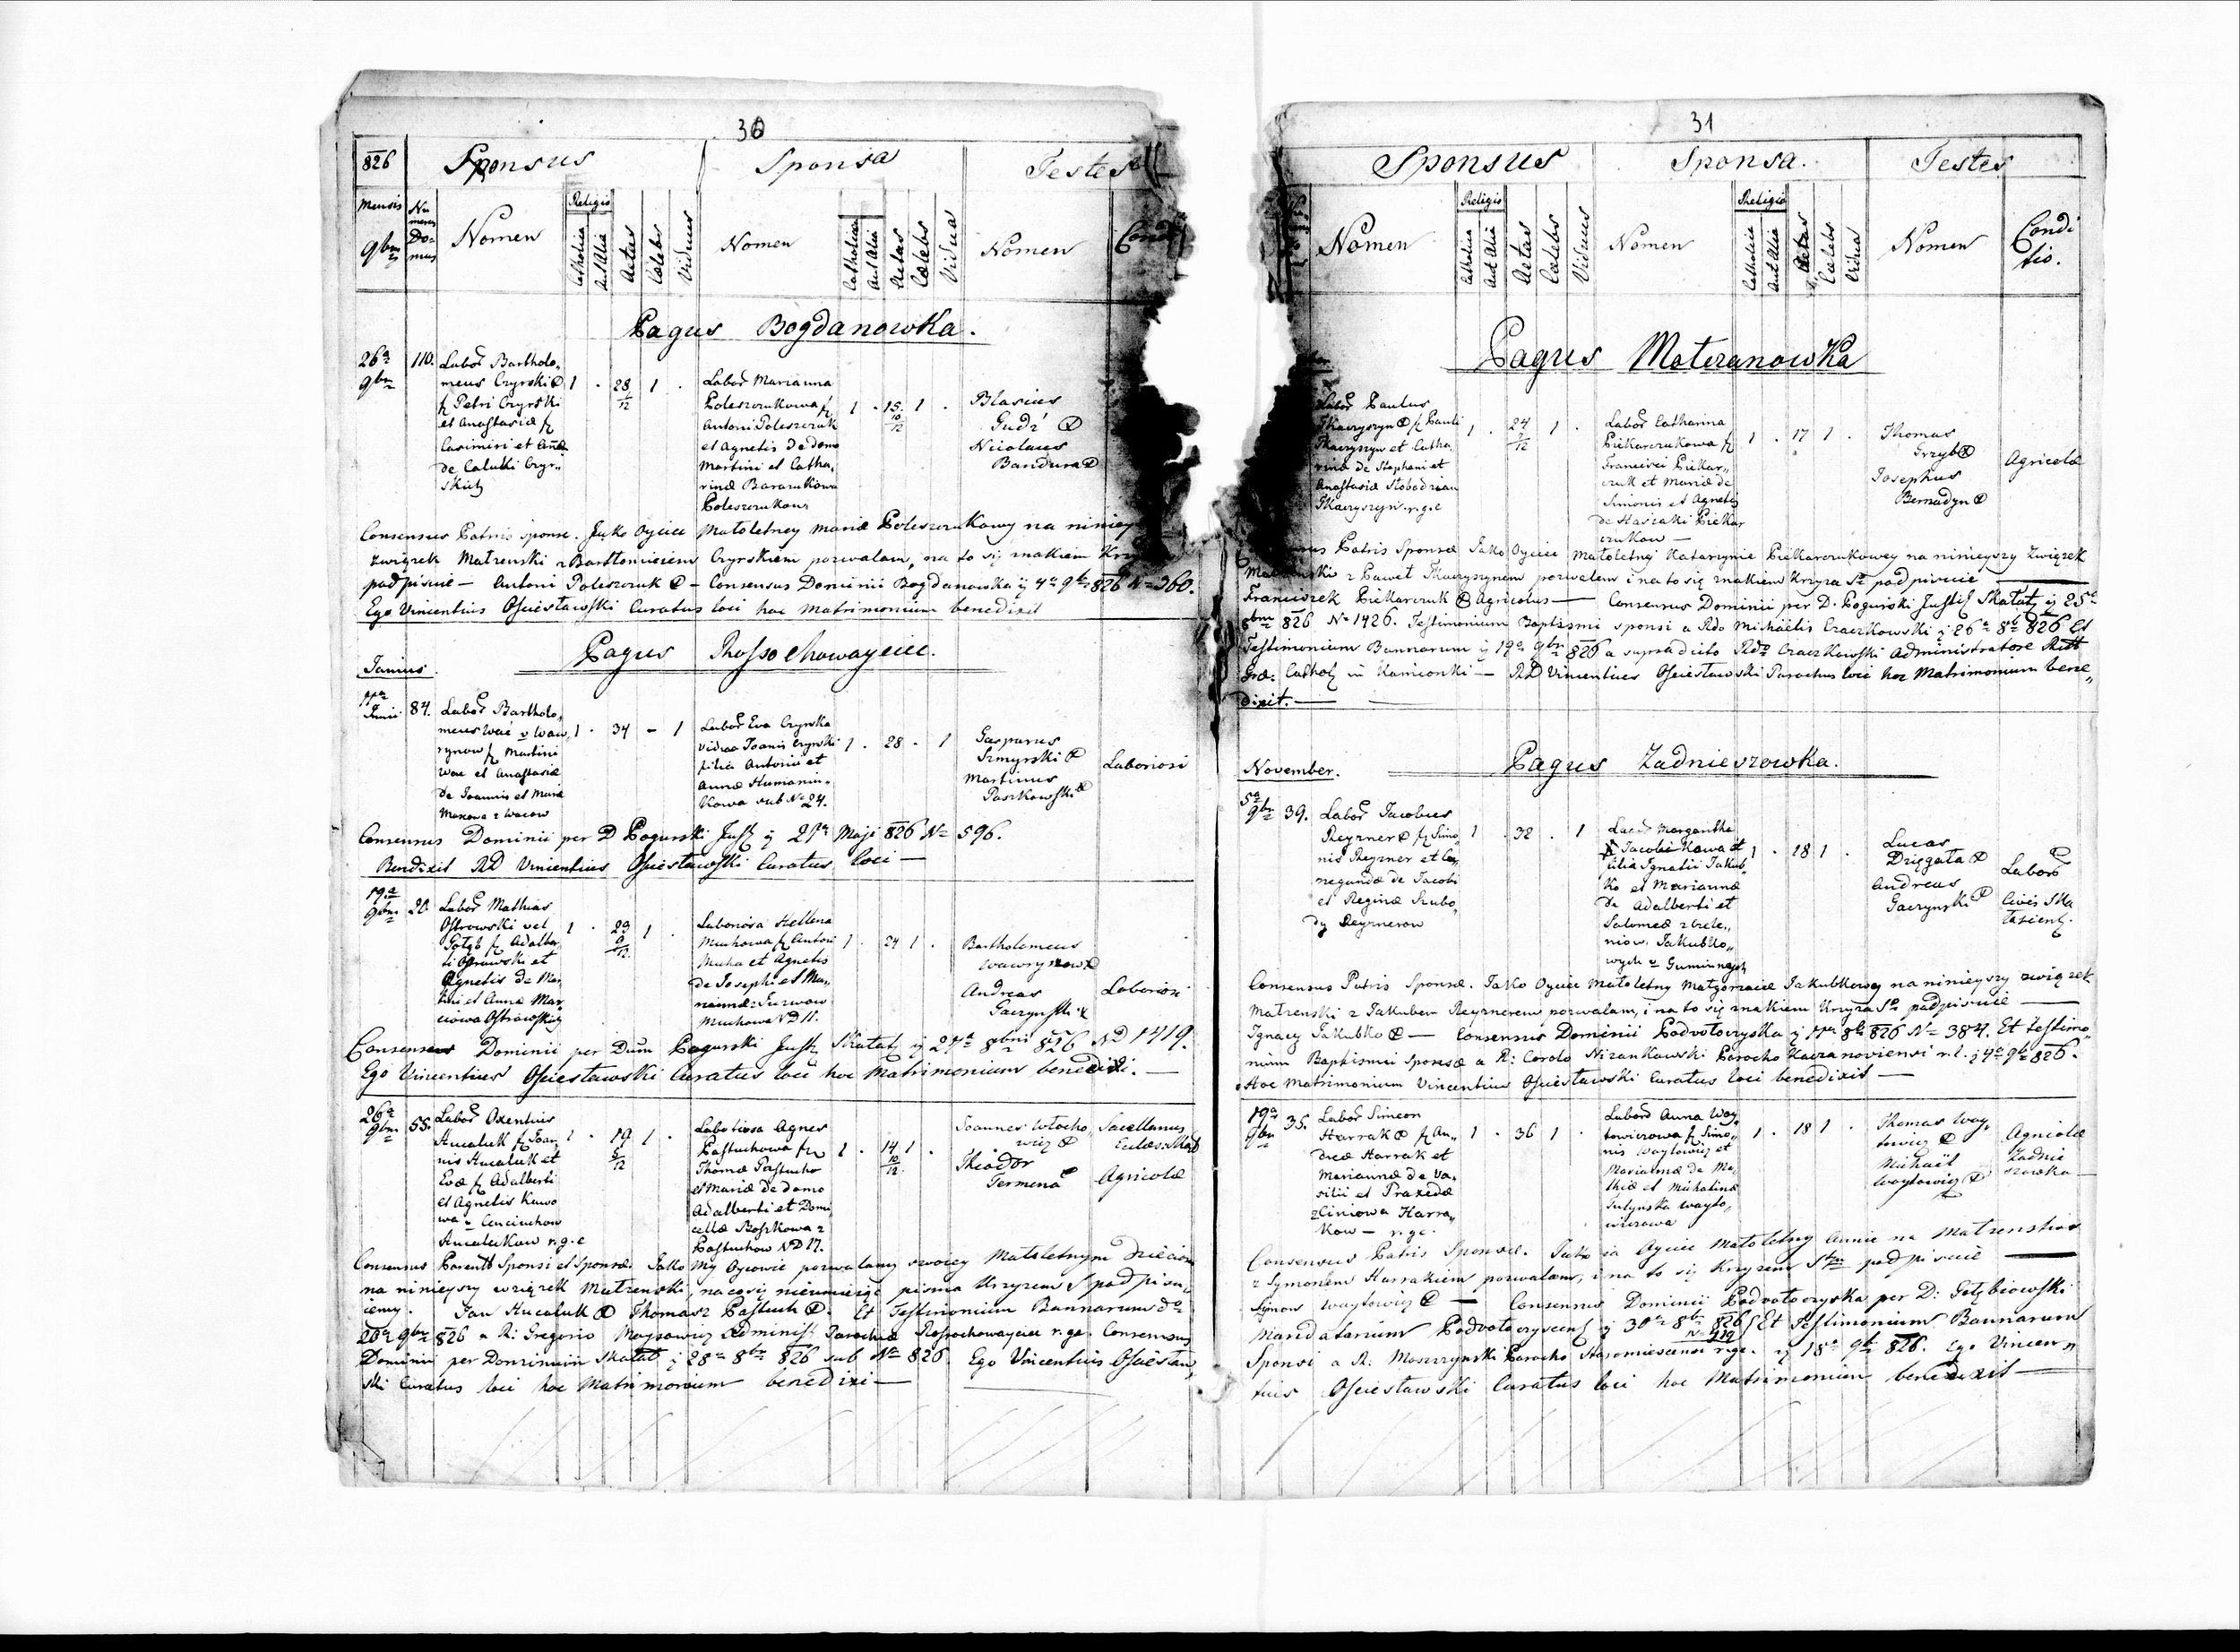 30
826 Sponsus Sponsa Testes
Mensis Numerus Domus Nomen Religio Catholica Aut Alia Aetas Coelebs Viduus Nomen Catholica Aut Alia Aetas Coelebs Vidua Nomen Condi
9bris
Pagus Bogdanowka.
26a 9bris 110.
Labor Bartholo„
meus Czyrski
f Petri Czyrski
et Anastasiæ f
Casimiri et Annæ
de Caluki Czyr„
skich
1 . 28 1/12 1 .
Labor Marianna
Poleszczukowa f
Antoni Poleszczuk
et Agnetis de domo
Martini et Catha„
rinæ Baranukowa
Poleszczukow
1 . 15. 10/12 1 .
Blasius
Gudź
Nicolaus
Bandura
Consensus Patris sponsæ. Jako Oyciec Małoletney Mariæ Poleszczukowy na niniey
związek Małżenski z Bartłomieiem Czyrskiem pozwalam, na to się znakiem Krzy
podpisuie — Antoni Poleszczuk — Consensus Dominii Bogdanowka ÿ 4a 9bris 826 No 360.
Ego Vincentius Osiesławski Curatus loci hoc Matrimonium benedixit
Pagus Rossochowayciec.
Junius.
11a Junii 84.
Labor Bartholo„
meus Wac v Waw„
rynow f Martini
Wac et Anastasiæ
de Joannis et Mariæ
Mazowa z Wacow
1 . 34 - 1
Labor Eva Czyrska
vidua Joanis Czyrski
filia Antonii et
Annæ Humanin„
kowa sub No 24.
1 . 28 . 1
Gasparus
Szmyrski
Martinus
Paszkowski
Laboriosi
Consensus Dominii per D Pogurski Just ÿ 27a Maji 826 No 596.
Bendixit RD Vincentius Osiesławski Curatus loci —
19a 9bris 20.
Labor Mathias
Ostrowski vel
Gołąb f Adalber
ti Ostrowski et
Agnetis de Mar
tini et Anna Mar
ciowa Ostrowskich
1 . 29 9/12 1 .
Laboriosa Hellena
Muchowa f Antoni
Mucha et Agnetis
de Josephi et Ma„
riannæ
Muchowa ND 11.
1 . 24 1 .
Bartholomeus
Wawrynow
Andreas
Gaczynski
Laboriosi
Consensus Dominii per Dum Pogurski Just Skałat ÿ 27a 8bris 826 ND 1419.
Ego Vincentius Osiesławski Curatus loci hoc Matrimonium benedixi. —
26a 9bris 55.
Labor Oxentius
Hucaluk f Joan„
nis Hucaluk et
Evæ f Adalberti
et Agnetis Kuwo
wa
Hucalukow r.g.c
1 . 19 5/12 1 .
Laboriosa Agnes
Pastuchowa f
Thomæ Pastucho
et Mariæ de domo
Adalberti et Domi
cellæ Boszkowa z
Pastuchow ND 17.
1 . 14 10/12 1 .
Joannes Włocho„
wicz
Theodor
Termena
Sacellanus
Eccles: Skał
Agricolæ
Consensus Parentt Sponsi et Sponsæ. Jako My Oycowie pozwalamy swoiey Małoletnym Dzieciom
na ninieyszy związek Małżenski, na co się nieumieiąc pisma Krzyżem S podpisu„
iemy. Jan Hucaluk Thomasz Pastuch. Et Testimonium Bannarum dto
20a 9bris 826 a R: Gregorio Administ Parochiæ Rossochowayciec r.gc. Consensus
Dominii per Dominium Skałat ÿ 28a 8bris 826 sub No 826. Ego Vincentius Osiesław„
ski Curatus loci hoc Matrimonium benedixi —
31
Sponsus Sponsa. Testes
Nomen Religio Catholica Aut Alia Aetas Coelebs Viduus Nomen Religio Catholica Aut Alia Aetas Coelebs Vidua Nomen Condi
tio.
Pagus Moteranowka
Labor Paulus
Tkaczyszyn f Pauli
Tkaczyszyn et Catha„
rinæ de Stephani et
Anastasiæ Słobodzian
Tkaczyszyn r.g.c
1 . 24 7/12 1 .
Labor Catharina
Piekarczukowa f
Francisci Piekar„
czuk et Mariæ de
Simonis et Agnetis
de Stasiaki Piekar
czukow —
1 . 17 1 .
Thomas
Grzyb
Josephus
Bernadyn
Agricolæ
Patris Sponsæ Jako Oyciec Małoletny Katarzynie Piekarczukowey na ninieyszy Związek
z Paweł Tkaczyszynem pozwalam i na to się znakiem Krzyża So podpisuie —
Franciszek Piekarczuk Agricolus — Consensus Dominii per D. Pogurski Justif Skałat ÿ 25a
8bris 826 No 1426. Testimonium Baptismi sponsi a Rdo Michäelis Czaczkowski ÿ 26a 8bris 826 Et
Testimonium Bannarum ÿ 19a 9bris 826 a supradicto Rdo Czaczkowski Administratore Ritt
Græ: Cathol in Kamionki — RD Vincentius Osiesławski Parochus loci hoc Matrimonium bene„
dixit. —
November. Pagus Zadnieszowka.
5a 9bris 39.
Labor Jacobus
Reyzner f Simo„
nis Reyzner et Cu„
negundæ de Jacobi
et Reginæ Szubo„
dy Reyznerow
1 . 32 . 1
Labor Margaritha
Jacobi Kowa et
filia Ignatii Jakub„
ko et Mariannæ
de Adalberti et
Salomeæ
Jakubko„
wych v Guminnych
1 . 18 1 .
Lucas
Drzęgała
Andreas
Gaczynski
Labor
Civis Ska
łacien.
Consensus Patris Sponsæ. Jako Oyciec Małoletny Małgorzacie Jakubkowey na ninieyszy związek
Małżenski z Jakubem Reyznerem pozwalam, i na to się znakiem Krzyża So podpisuie —
Ignacy Jakubko — Consensus Dominii Podwołoczyska ÿ 11a 8bris 826 No 384. Et Testimo„
nium Baptismii Sponsæ a R: Carolo Nizankowski Parocho Kaczanoviensi r.l. ÿ 4a 9bris 826.
Hoc Matrimonium Vincentius Osiesławski Curatus loci benedixit —
19a 9bris 35.
Labor Simeon
Harrak f An„
dreæ Harrak et
Mariannæ de Va„
silii et Praxedæ
Harra„
kow — r.gc.
1 . 36 1 .
Labor Anna Way„
towiczowa f Simo„
nis Waytowicz et
Mariannæ de Ma„
thiæ et Michalinæ
Wayto„
wiczowa
1 . 18 1 .
Thomas Way„
towicz
Michaël
Waytowicz
Agricolæ
Zadnie
szowka
Consensus Patris Sponsæ. Jako ia Oyciec Małoletny Annie na Małżenstwo
z Symonem Harrakiem pozwalam, i na to się Krzyżem Stym podpisuie —
Symon Waytowicz — Consensus Dominii Podwołoczyska per D: Gołębiowski
Mandatarium Podwołoczyscens ÿ 30a 8bris 826 No 419 Et Testimonium Bannarum
Sponsi a R: Moszczynski Parocho Staromiescensi r.gc. ÿ 18a 9bris 826. Ego Vincen„
tius Osiesławski Curatus loci hoc Matrimonium benedixit —